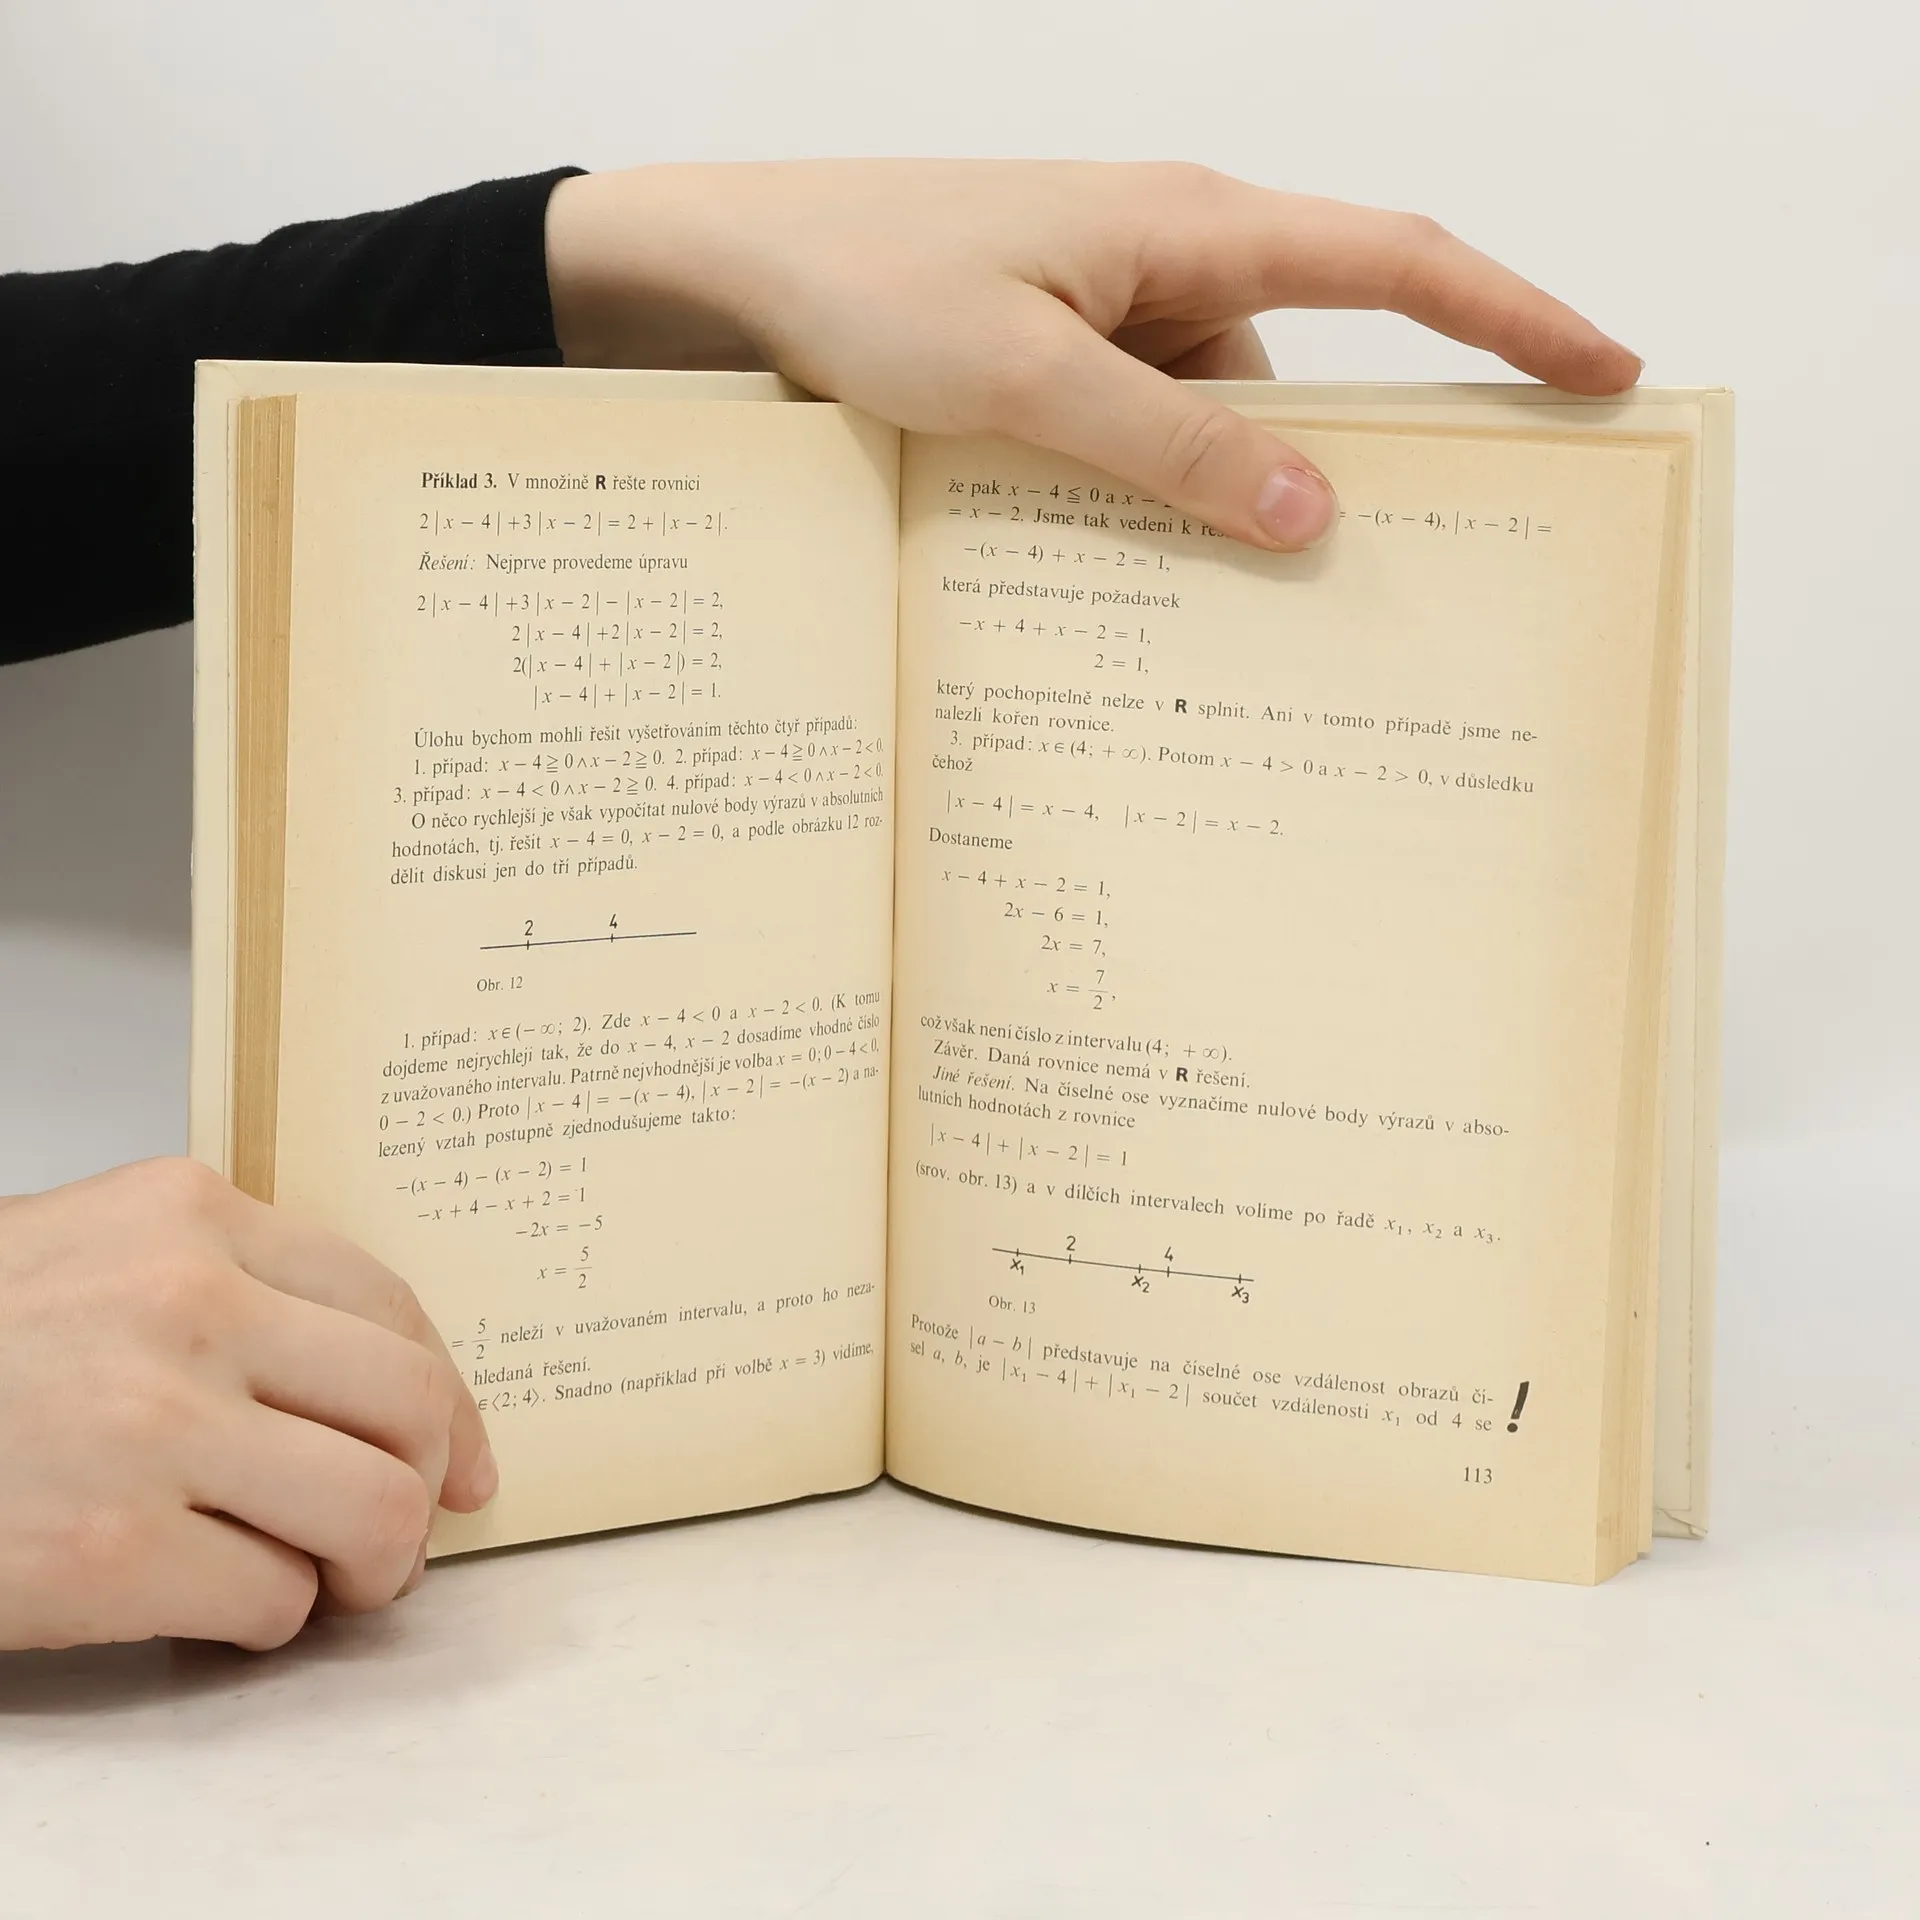 Příklad 3. V množině R řešte rovnici
2|x − 4| +3|x − 2| = 2 + |x − 2|.
Řešení: Nejprve provedeme úpravu
2|x − 4| +3|x − 2| − |x − 2| = 2,
2|x − 4| +2|x − 2| = 2,
2(|x − 4| + |x − 2|) = 2,
|x − 4| + |x − 2| = 1.
Úlohu bychom mohli řešit vyšetřováním těchto čtyř případů:
1. případ: x − 4 ≧ 0 ∧ x − 2 ≧ 0. 2. případ: x − 4 ≧ 0 ∧ x − 2 < 0.
3. případ: x − 4 < 0 ∧ x − 2 ≧ 0. 4. případ: x − 4 < 0 ∧ x − 2 < 0.
O něco rychlejší je však vypočítat nulové body výrazů v absolutních
hodnotách, tj. řešit x − 4 = 0, x − 2 = 0, a podle obrázku 12 roz-
dělit diskusi jen do tří případů.
2 4
Obr. 12
1. případ: x ∈ (− ∞; 2). Zde x − 4 < 0 a x − 2 < 0. (K tomu
dojdeme nejrychleji tak, že do x − 4, x − 2 dosadíme vhodné číslo
z uvažovaného intervalu. Patrně nejvhodnější je volba x = 0; 0 − 4 < 0,
0 − 2 < 0.) Proto |x − 4| = −(x − 4), |x − 2| = −(x − 2) a na-
lezený vztah postupně zjednodušujeme takto:
−(x − 4) − (x − 2) = 1
−x + 4 − x + 2 = 1
−2x = −5
x = 5/2
= 5/2 neleží v uvažovaném intervalu, a proto ho neza-
hledaná řešení.
∈ ⟨2; 4⟩. Snadno (například při volbě x = 3) vidíme,
že pak x − 4 ≦ 0 a x − = −(x − 4), |x − 2| =
= x − 2. Jsme tak vedeni k
−(x − 4) + x − 2 = 1,
která představuje požadavek
−x + 4 + x − 2 = 1,
2 = 1,
který pochopitelně nelze v R splnit. Ani v tomto případě jsme ne-
nalezli kořen rovnice.
3. případ: x ∈ (4; + ∞). Potom x − 4 > 0 a x − 2 > 0, v důsledku
čehož
|x − 4| = x − 4, |x − 2| = x − 2.
Dostaneme
x − 4 + x − 2 = 1,
2x − 6 = 1,
2x = 7,
x = 7/2,
což však není číslo z intervalu (4; + ∞).
Závěr. Daná rovnice nemá v R řešení.
Jiné řešení. Na číselné ose vyznačíme nulové body výrazů v abso-
lutních hodnotách z rovnice
|x − 4| + |x − 2| = 1
(srov. obr. 13) a v dílčích intervalech volíme po řadě x₁, x₂ a x₃.
2 4
x₁ x₂ x₃
Obr. 13
Protože |a − b| představuje na číselné ose vzdálenost obrazů čí-
sel a, b, je |x₁ − 4| + |x₁ − 2| součet vzdálenosti x₁ od 4 se
!
113